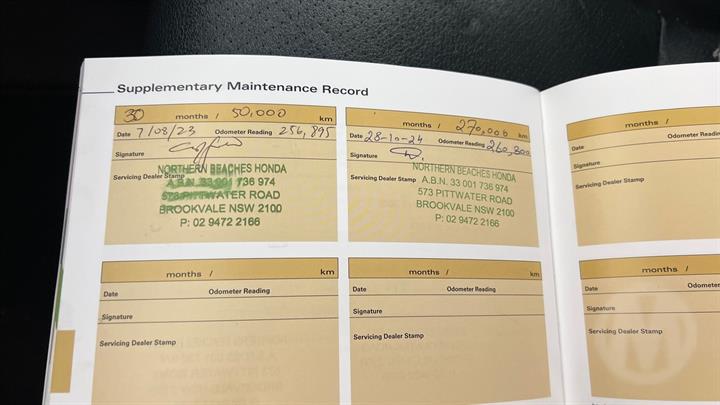 Supplementary Maintenance Record
30 months / 50,000 km
Date 7/08/23 Odometer Reading 256,895
Signature
Servicing Dealer Stamp
NORTHERN BEACHES HONDA
A.B.N. 33 001 736 974
573 PITTWATER ROAD
BROOKVALE NSW 2100
P: 02 9472 2166
months / 270,000 km
Date 28-10-24 Odometer Reading 260,300
Signature
Servicing Dealer Stamp
NORTHERN BEACHES HONDA
A.B.N. 33 001 736 974
573 PITTWATER ROAD
BROOKVALE NSW 2100
P: 02 9472 2166
months /
Date
Signature
Servicing Dealer Stamp
months / km
Date Odometer Reading
Signature
Servicing Dealer Stamp
months / km
Date Odometer Reading
Signature
Servicing Dealer Stamp
months /
Date Odometer
Signature
Servicing Dealer Stamp